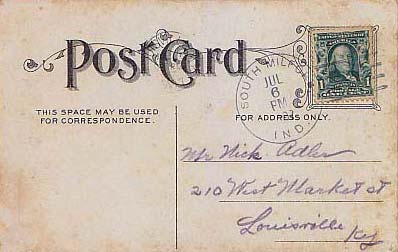 Post Card
THIS SPACE MAY BE USED
FOR CORRESPONDENCE.
FOR ADDRESS ONLY.
SOUTH MILFORD
JUL
6
PM
IND.
1
Mr Nick Adler
210 West Market st
Louisville
Ky